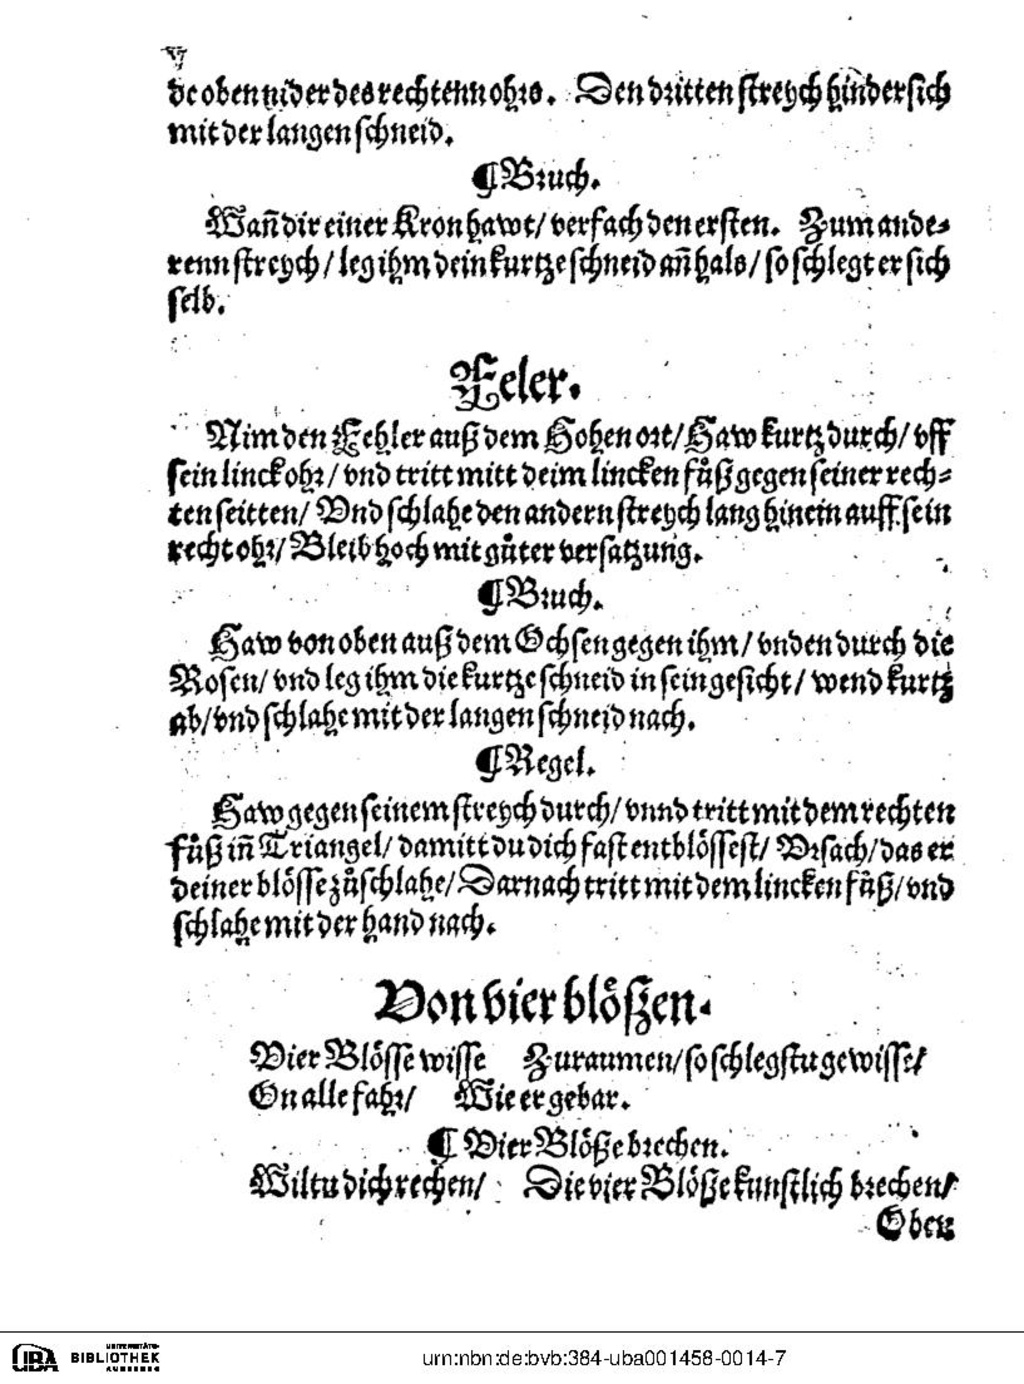 V
de oben nider des rechtenn ohrs. Den dritten streych hindersich
mit der langen schneid.
¶ Bruch.
Wañ dir einer Kron hawt/ verfach den ersten. Zum ande⸗
renn streych/ leg ihm dein kurtze schneid añ hals/ so schlegt er sich
selb.
Feler.
Nim den Fehler auß dem Hohen ort/ Haw kurtz durch/ vff
sein linck ohr/ vnd tritt mitt deim lincken fůß gegen seiner rech⸗
ten seitten/ Vnd schlahe den andern streych lang hinein auff sein
recht ohr/ Bleib hoch mit gůter versatzung.
¶ Bruch.
Haw von oben auß dem Ochsen gegen ihm/ vnden durch die
Rosen/ vnd leg ihm die kurtze schneid in sein gesicht/ wend kurtz
ab/ vnd schlahe mit der langen schneid nach.
¶ Regel.
Haw gegen seinem streych durch/ vnnd tritt mit dem rechten
fůß iñ Triangel/ damitt du dich fast entblössest/ Vrsach/ das er
deiner blösse zůschlahe/ Darnach tritt mit dem lincken fůß/ vnd
schlahe mit der hand nach.
Von vier blößen.
Vier Blösse wisse Zuraumen/ so schlegstu gewisse/
On alle fahr/ Wie er gebar.
¶ Vier Blöße brechen.
Wiltu dich rechen/ Die vier Blöße kunstlich brechen/
Oben
UBA UNIVERSITÄTS-
BIBLIOTHEK
AUGSBURG
urn:nbn:de:bvb:384-uba001458-0014-7